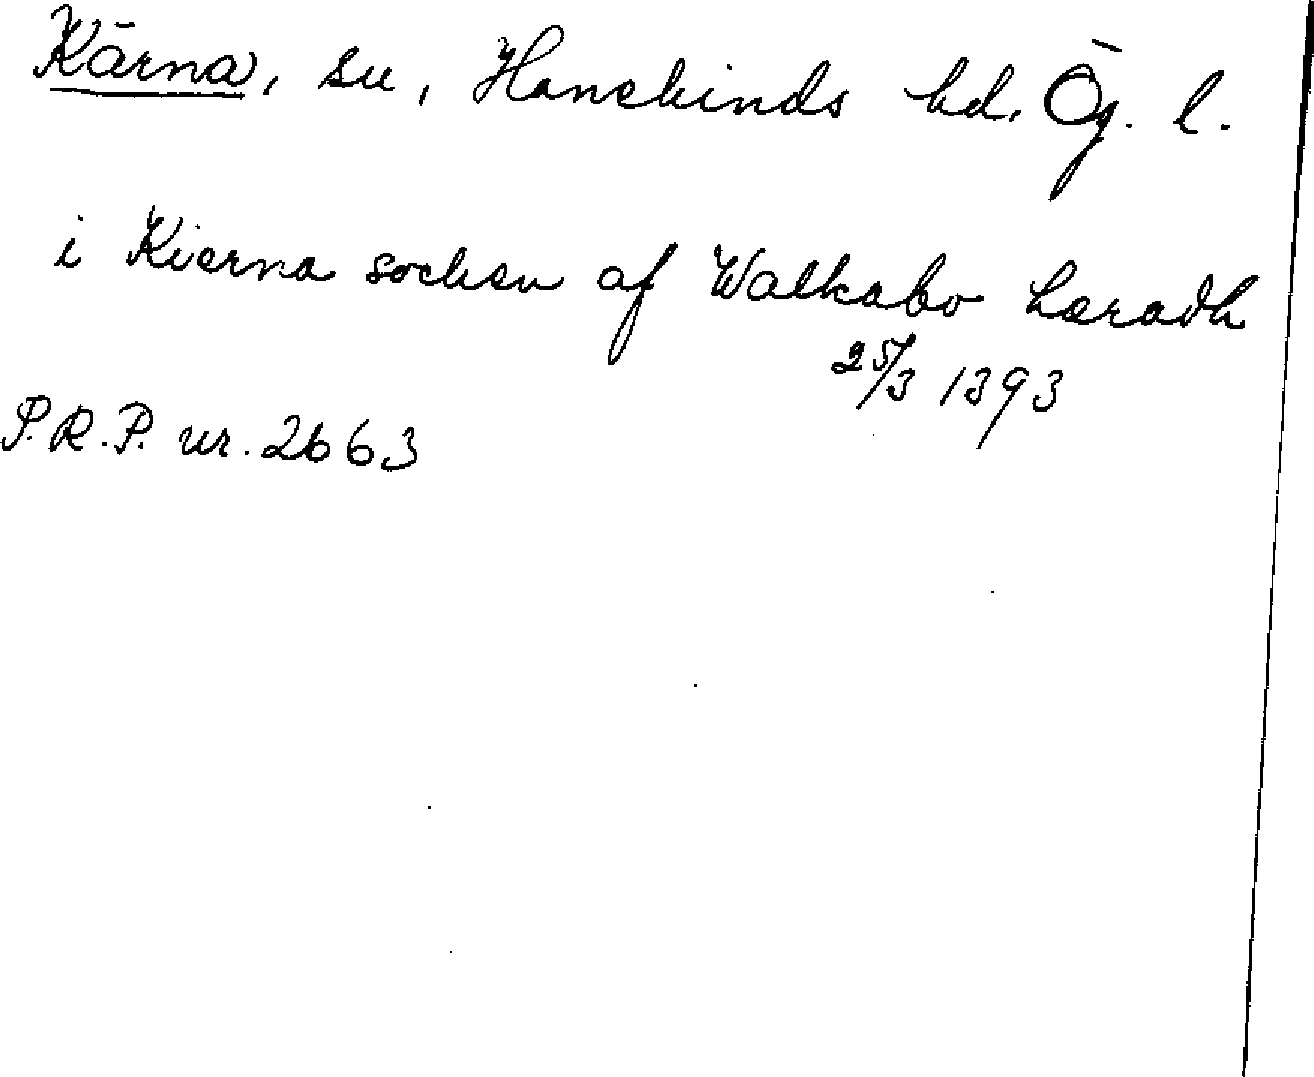 Kärna, sn, Hanekinds hd. Ög. l.
i Kierna sochen af Walkabo hæradh
25/3 1393
P.R.P. nr. 2663